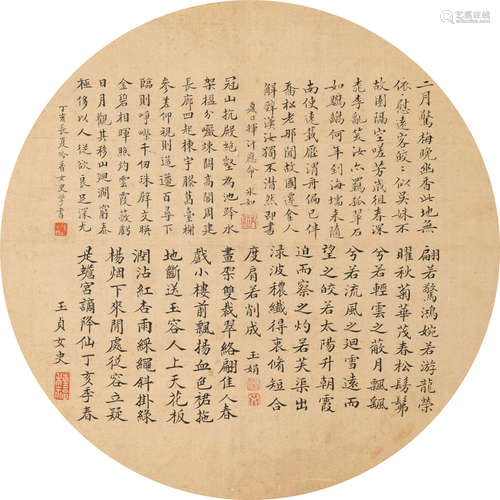 二月驚梅晚幽香此地無
依〻慰遠客皎〻似吳姝不
故園隔空嗟芳歲徂春深
桃李亂笑汝六羈孤
如鸚鵡何年到海壖未隨
南使遠載雁渭舟偏已伴
喬松老那聞故國遷食人
解辭漢汝獨不潸然即書
揮汗應命 永如
冠山抗殿絕壑為池跨水
架楹分巖竦闕高閣周建
長廊四起棟宇膠葛臺榭
參差仰視則迢遰百尋下
臨則崢嶸千仞珠璧交暎
金碧相暉照灼雲霞蔽虧
日月觀其移山迴澗窮泰
極侈以人從欲良足深尤
丁亥長夏吟香女史學書
翩若驚鴻婉若游龍榮
曜秋菊華茂春松髣髴
兮若輕雲之蔽月飄颻
兮若流風之迴雪遠而
望之皎若太陽升朝霞
迫而察之灼若芙渠出
淥波穠纖得衷脩短合
度肩若削成 玉娟
畫架雙裁翠絡翩佳人春
戲小樓前飄揚血色裙拖
地斷送玉容人上天花板
潤沾紅杏雨綵繩斜掛綠
楊烟下來閒處從容立疑
是蟾宮謫降仙丁亥季春
玉貞女史